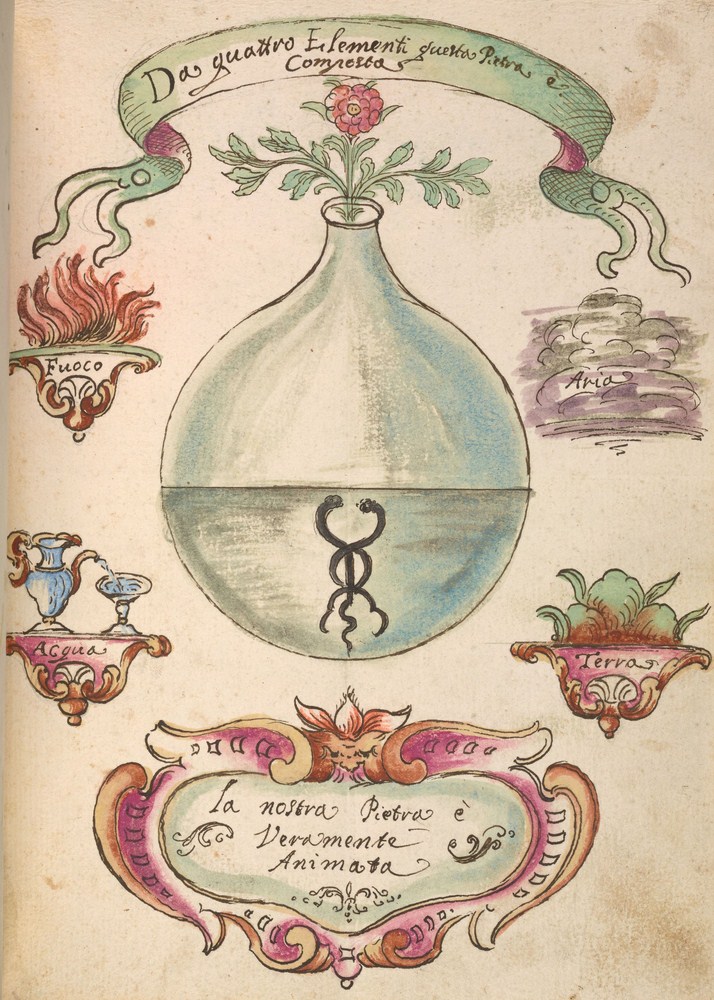 Da quattro Elementi questa Pietra è
Composta
Fuoco
Aria
Acqua
Terra
La nostra Pietra è
Veramente
Animata